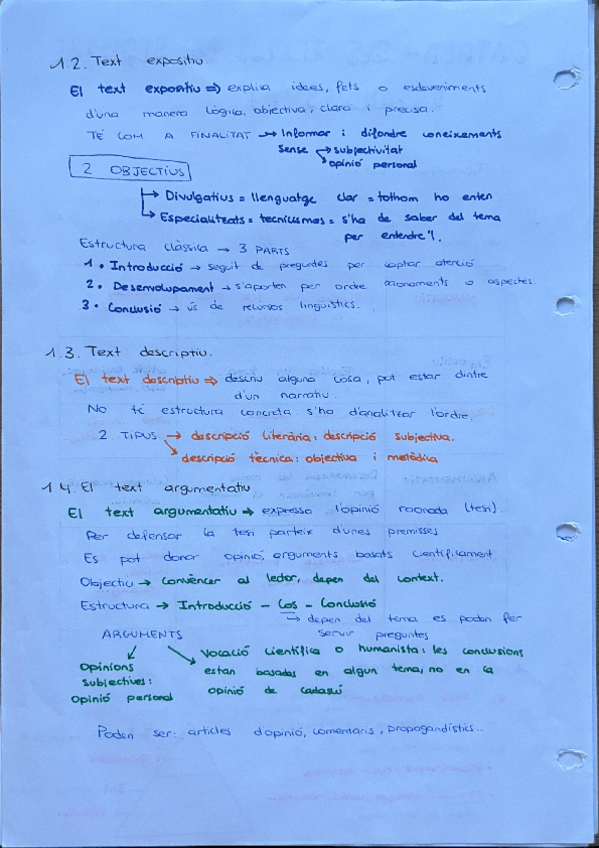 1.2. Text expositiu
El text expositiu ⇒ explica idees, fets o esdeveniments
d'una manera lògica, objectiva, clara i precisa.
TÉ COM A FINALITAT → Informar i difondre coneixements
sense → subjectivitat
→ opinió personal
2 OBJECTIUS
→ Divulgatius = llenguatge clar = tothom ho enten
→ Especialitzats = tecnicismes = s'ha de saber del tema
per entendre'l.
Estructura clàssica → 3 PARTS
1. Introducció → seguit de preguntes per captar atenció
2. Desenvolupament → s'aporten per ordre raonaments o aspectes.
3. Conclusió → ús de recursos lingüístics.
1.3. Text descriptiu.
El text descriptiu ⇒ descriu alguna cosa, pot estar dintre
d'un narratiu.
No té estructura concreta s'ha d'analitzar l'ordre.
2 TIPUS → descripció literària: descripció subjectiva.
→ descripció tècnica: objectiva i metòdica
1.4. El text argumentatiu
El text argumentatiu → expressa l'opinió raonada (tesi).
Per defensar la tesi parteix d'unes premisses
Es pot donar opinió, arguments basats científicament
Objectiu → Convèncer al lector, depen del context.
Estructura → Introducció - Cos - Conclusió
→ depen del tema es poden fer
servir preguntes
ARGUMENTS
Vocació científica o humanista: les conclusions
estan basades en algun tema, no en la
opinió de cadascú
Opinions
subjectives:
Opinió personal
Poden ser: articles d'opinió, comentaris, propagandístics..